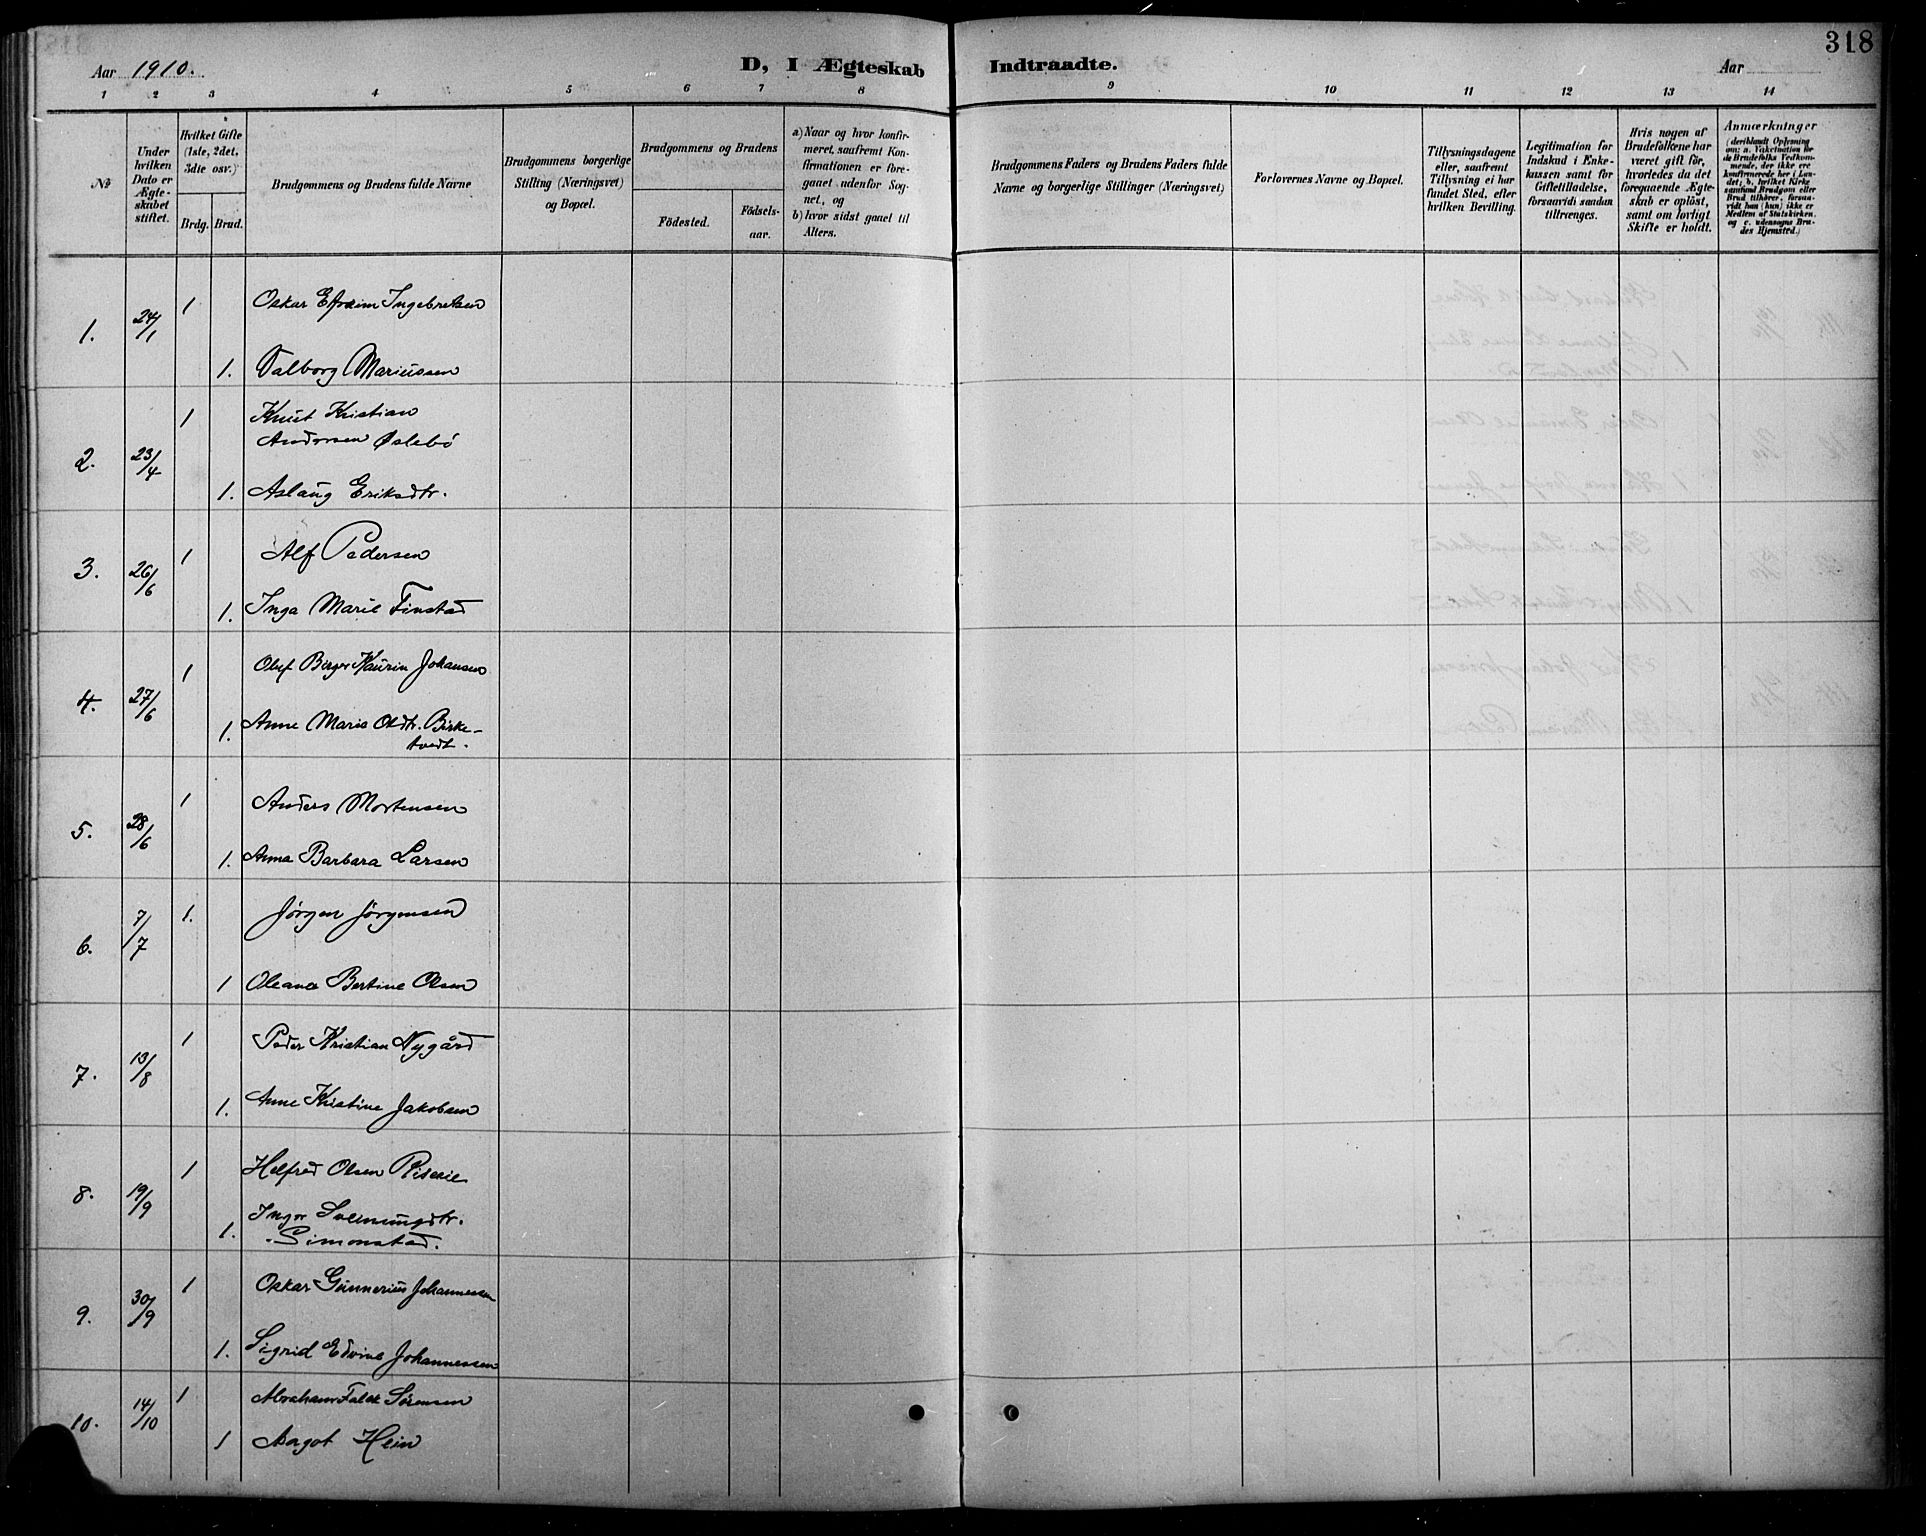 318
Aar 1910.
D, I Ægteskab Indtraadte.
Aar
1 2 3 4 5 6 7 8 9 10 11 12 13 14
No
Under hvilken Dato er Ægteskabet stiftet.
Hvilket Gifte (1ste, 2det, 3die osv.)
Brdg. Brud.
Brudgommens og Brudens fulde Navne
Brudgommens borgerlige
Stilling (Næringsvei)
og Bopæl.
Brudgommens og Brudens
Födested.
Födsels-
aar.
a) Naar og hvor konfir-
meret, saafremt Kon-
firmationen er fore-
gaaet udenfor Sog-
net, og
b) hvor sidst gaaet til
Alters.
Brudgommens Faders og Brudens Faders fulde
Navne og borgerlige Stillinger (Næringsvei)
Forlovernes Navne og Bopæl.
Tillysningsdagene
eller, saafremt
Tillysning ei har
fundet Sted, efter
hvilken Bevilling.
Legitimation for
Indskud i Enke-
kassen samt for
Giftetilladelse,
forsaavidt saadan
tiltrænges.
Hvis nogen af
Brudefolkene har
været gift för,
hvorledes da det
foregaaende Ægte-
skab er oplöst,
samt om lovligt
Skifte er holdt.
Anmærkninger
(deriblandt Oplysning
om: a. Vakcination for
de Brudefolks Vedkom-
mende, der ikke ere
konfirmerede her i Lan-
det; b. hvilket Kirke-
samfund Brudgom eller
Brud tilhörer, forsaa-
vidt han (hun) ikke er
Medlem af Statskirken,
og c. udensogns Bru-
des Hjemsted.)
1. 24/1 1 Oskar Efraim Ingebretsen
1. Valborg Mariussen
2. 23/4 1 Knut Kristian
Andersen Øslebö
1. Aslaug Eriksdtr.
3. 26/6 1 Alf Pedersen
1. Inga Marie Finstad
4. 27/6 1 Olaf Birger Kaurin Johansen
1. Anne Marie Olsdtr. Birke-
tvedt.
5. 28/6 1 Anders Mortensen
1. Anna Barbara Larsen
6. 7/7 1. Jörgen Jörgensen
1 Oleanea Bertine Olsen
7. 13/8 1 Peder Kristian Nygård
1. Anne Kristine Jakobsen
8. 19/9 1 Helfred Olsen
1. Inger Sveinungdtr.
Simonstad.
9. 30/9 1 Oskar Gunnerius Johannessen
1. Sigrid Edvine Johannessen
10. 14/10 1 Abraham Falck Sörensen
1 Margot Hein